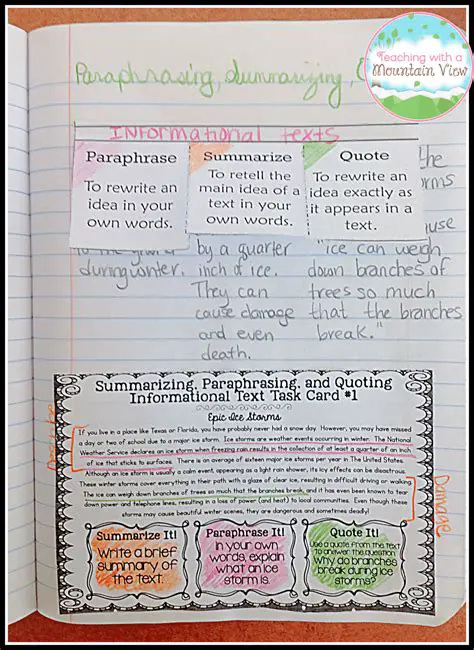 Teaching with a
Mountain View
Paraphrasing, Summarizing,
Informational texts
Paraphrase
To rewrite an
idea in your
own words.
Summarize
To retell the
main idea of a
text in your
own words.
Quote
To rewrite an
idea exactly as
it appears in a
text.
the
during winter.
by a quarter
inch of ice.
They can
cause damage
and even
death.
"ice can weigh
down branches of
trees so much
that the branches
break."
Summarizing, Paraphrasing, and Quoting
Informational Text Task Card #1
Epic Ice Storms
If you live in a place like Texas or Florida, you have probably never had a snow day. However, you may have missed
a day or two of school due to a major ice storm. Ice storms are weather events occurring in winter. The National
Weather Service declares an ice storm when freezing rain results in the collection of at least a quarter of an inch
of ice that sticks to surfaces. There is an average of sixteen major ice storms per year in The United States.
Although an ice storm is usually a calm event, appearing as a light rain shower, its icy effects can be disastrous.
These winter storms cover everything in their path with a glaze of clear ice, resulting in difficult driving or walking.
The ice can weigh down branches of trees so much that the branches break, and it has even been known to tear
down power and telephone lines, resulting in a loss of power (and heat) to local communities. Even though these
storms may cause beautiful winter scenes, they are dangerous and sometimes deadly!
Damage
Summarize It!
Write a brief
summary of
the text.
Paraphrase It!
In your own
words, explain
what an ice
storm is.
Quote It!
Use a quote from the text
to answer the question:
Why do branches
break during ice
storms?